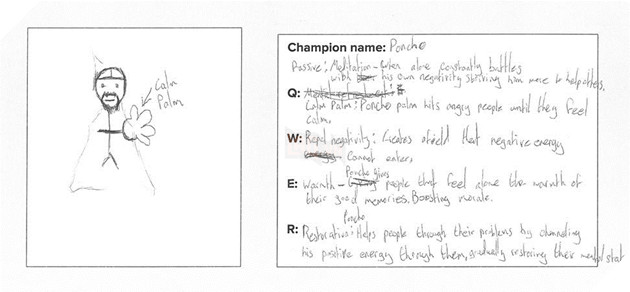 Calm
Palm
Champion name: Poncho
Passive: Meditation - When alone constantly battles
with his own negativity striving him more to help others.
Q:
Calm Palm: Poncho palm hits angry people until they feel
calm.
W: Repel negativity: Creates a field that negative energy
cannot enter.
E: Warmth - Poncho gives people that feel alone the warmth of
their good memories. Boosting morale.
R: Restoration: Poncho Helps people through their problems by channeling
his positive energy through them, gradually restoring their mental stat